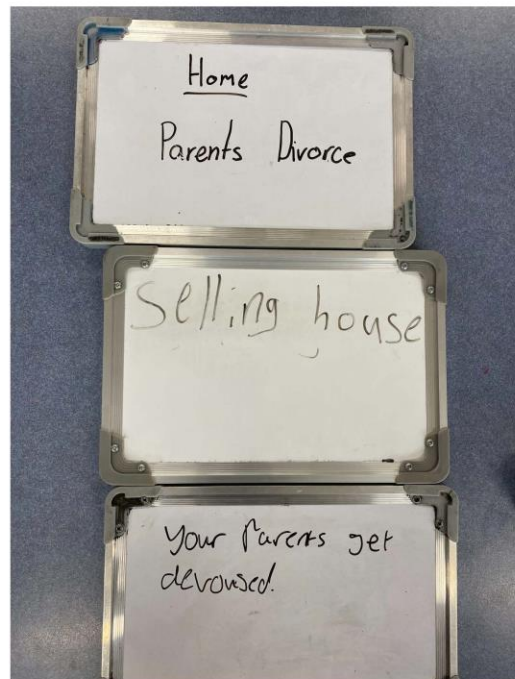 Home
Parents Divorce
Selling house
Your Parents get
devoused.